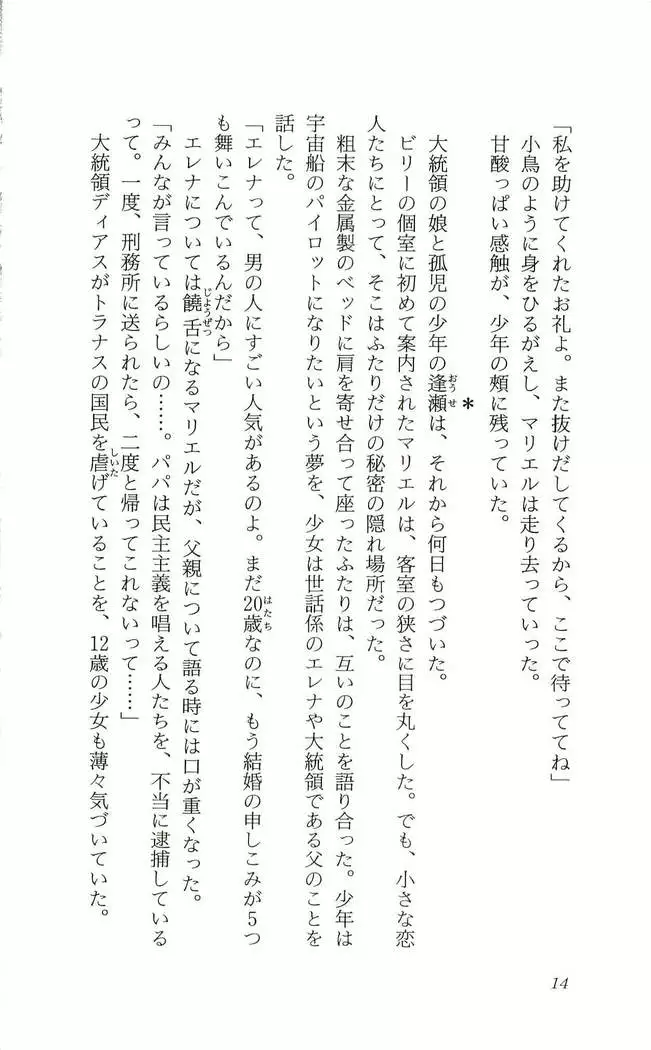 「私を助けてくれたお礼よ。また抜けだしてくるから、ここで待っててね」
小鳥のように身をひるがえし、マリエルは走り去っていった。
甘酸っぱい感触が、少年の頰に残っていた。
*
大統領の娘と孤児の少年の逢瀬は、それから何日もつづいた。
ビリーの個室に初めて案内されたマリエルは、客室の狭さに目を丸くした。でも、小さな恋
人たちにとって、そこはふたりだけの秘密の隠れ場所だった。
粗末な金属製のベッドに肩を寄せ合って座ったふたりは、互いのことを語り合った。少年は
宇宙船のパイロットになりたいという夢を、少女は世話係のエレナや大統領である父のことを
話した。
「エレナって、男の人にすごい人気があるのよ。まだ20歳なのに、もう結婚の申しこみが5つ
も舞いこんでいるんだから」
エレナについては饒舌になるマリエルだが、父親について語る時には口が重くなった。
「みんなが言っているらしいの……。パパは民主主義を唱える人たちを、不当に逮捕している
って。一度、刑務所に送られたら、二度と帰ってこれないって……」
大統領ディアスがトラナスの国民を虐げていることを、12歳の少女も薄々気づいていた。
おうせ
はたち
じょうぜつ
しいた
14